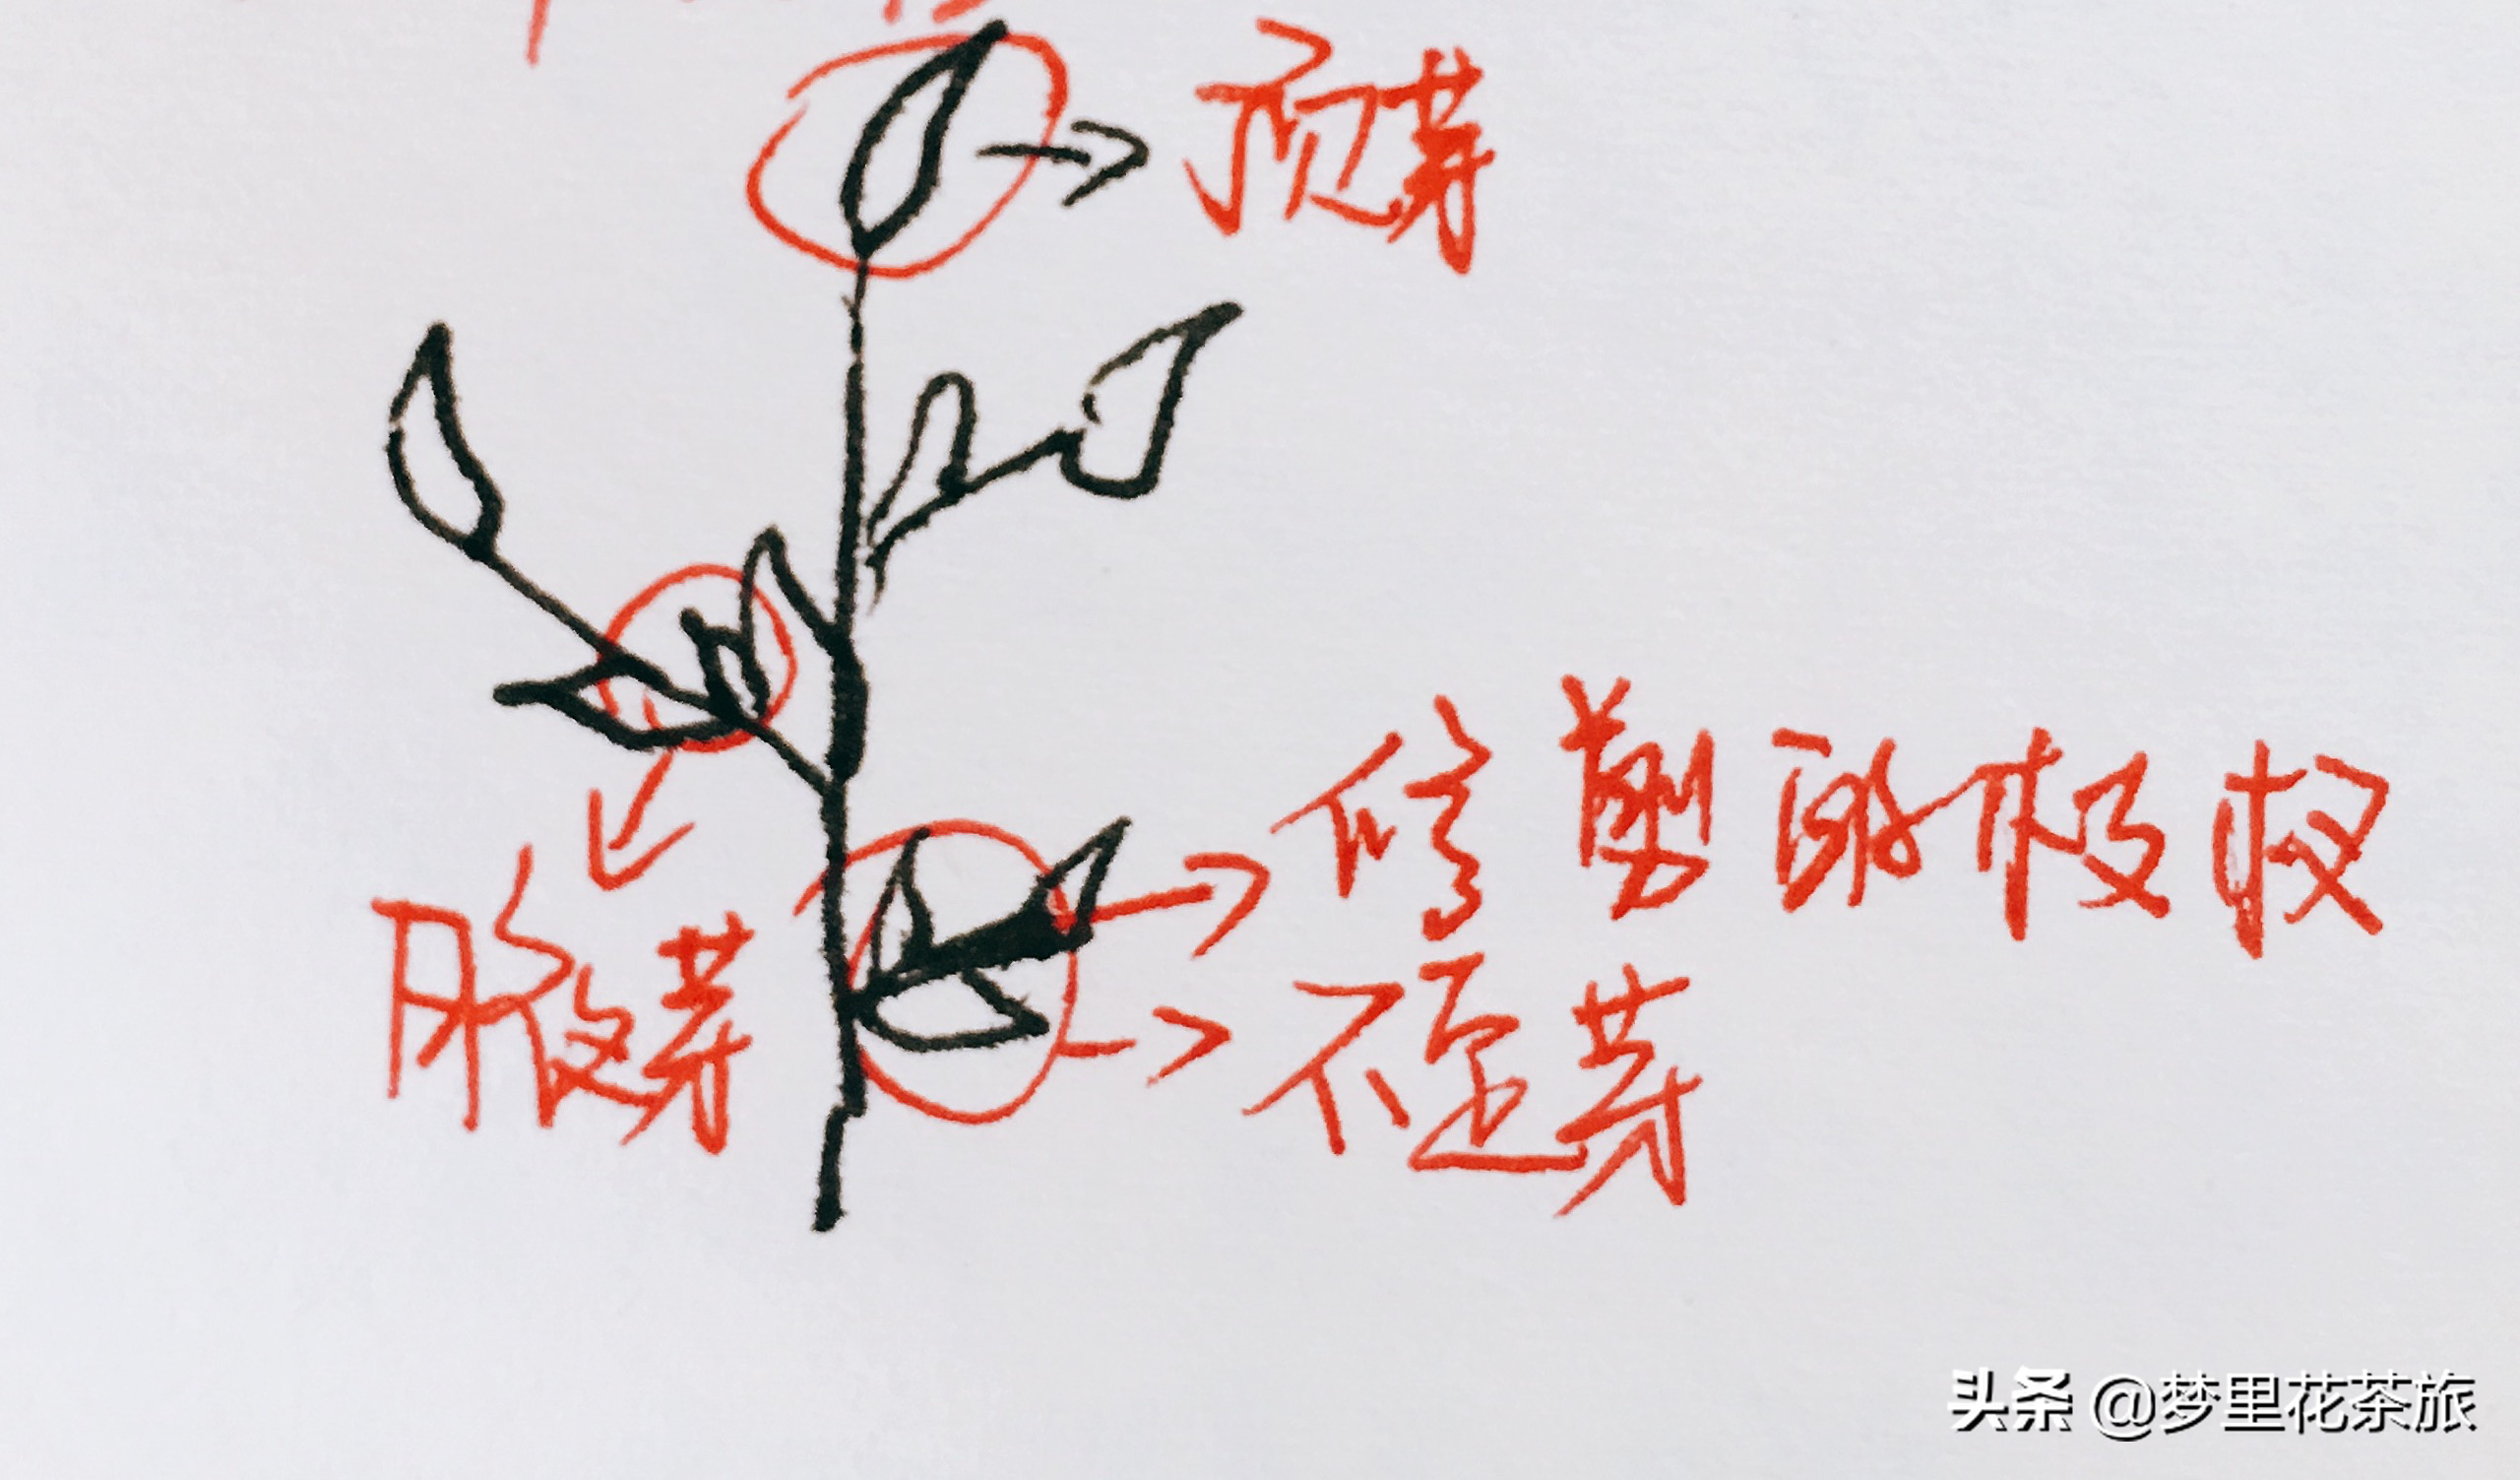 顶芽
修剪的枝杈
腋芽
不定芽
头条 @梦里花茶旅